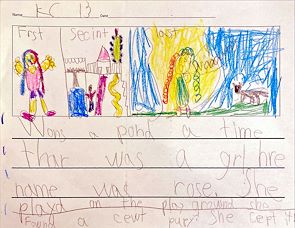 Name KC 13 Date
First Secint last
Wons a pond a time
thar was a grl hre
name was rose. She
playd on the play ground she
Found a cewt pupy. She cept it